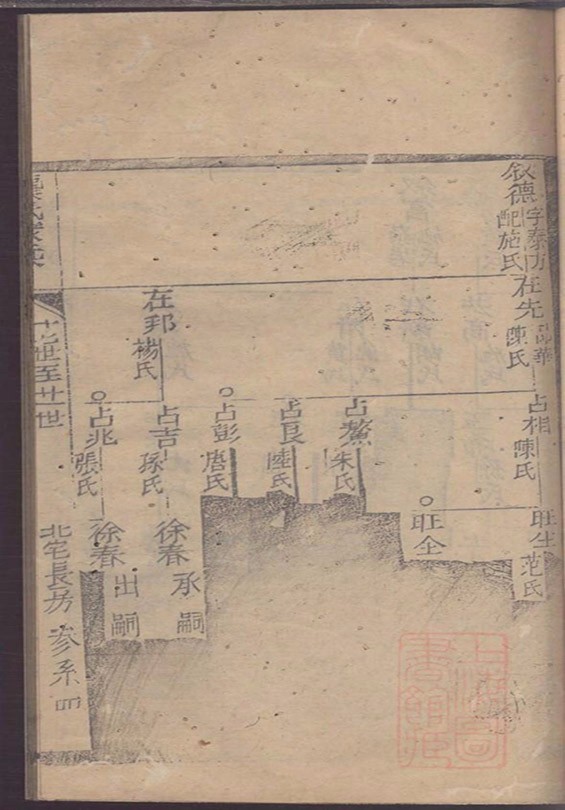 叙德
配施氏
在先
陳氏
占相
陳氏
旺生
范氏
旺全
占鰲
朱氏
占良
陸氏
占彭
唐氏
在邦
楊氏
占吉
孫氏
徐春
承嗣
占兆
張氏
徐春
出嗣
世至廿世
北宅長房
參系四